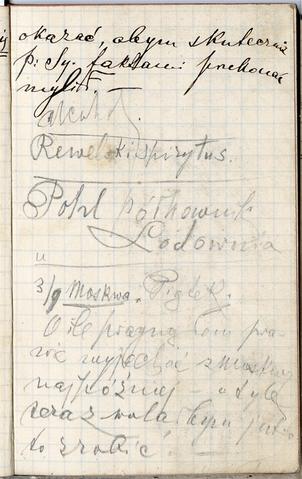 okazać, abym skutecznie
p. Sy. faktami przekonać
myślił. —
alkohol
Rewelski spirytus.
Pohl półkownik
Lodownia
u
3/9 Moskwa. Piątek.
O ile pragnąłem pra-
wie wyjechać z Moskwy
najpóźniej — o tyle
teraz wolałbym już
to zrobić!